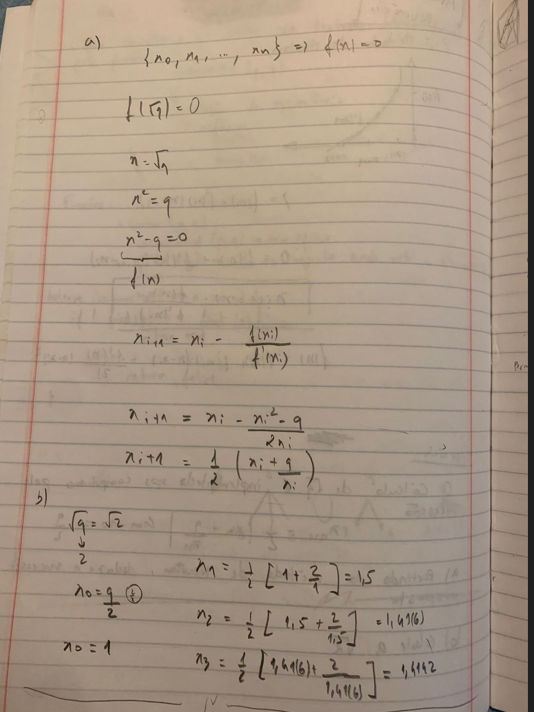 a)
{x0, x1, ..., xn} => f(x) = 0
f(√q) = 0
x = √q
x² = q
x² - q = 0
f(x)
xi+1 = xi - f(xi) / f'(xi)
xi+1 = xi - (xi² - q) / 2xi
xi+1 = 1/2 (xi + q/xi)
b)
√q = √2
↓
2
x0 = q/2
x0 = 1
x1 = 1/2 [1 + 2/1] = 1,5
x2 = 1/2 [1,5 + 2/1,5] = 1,41(6)
x3 = 1/2 [1,41(6) + 2/1,41(6)] = 1,4142